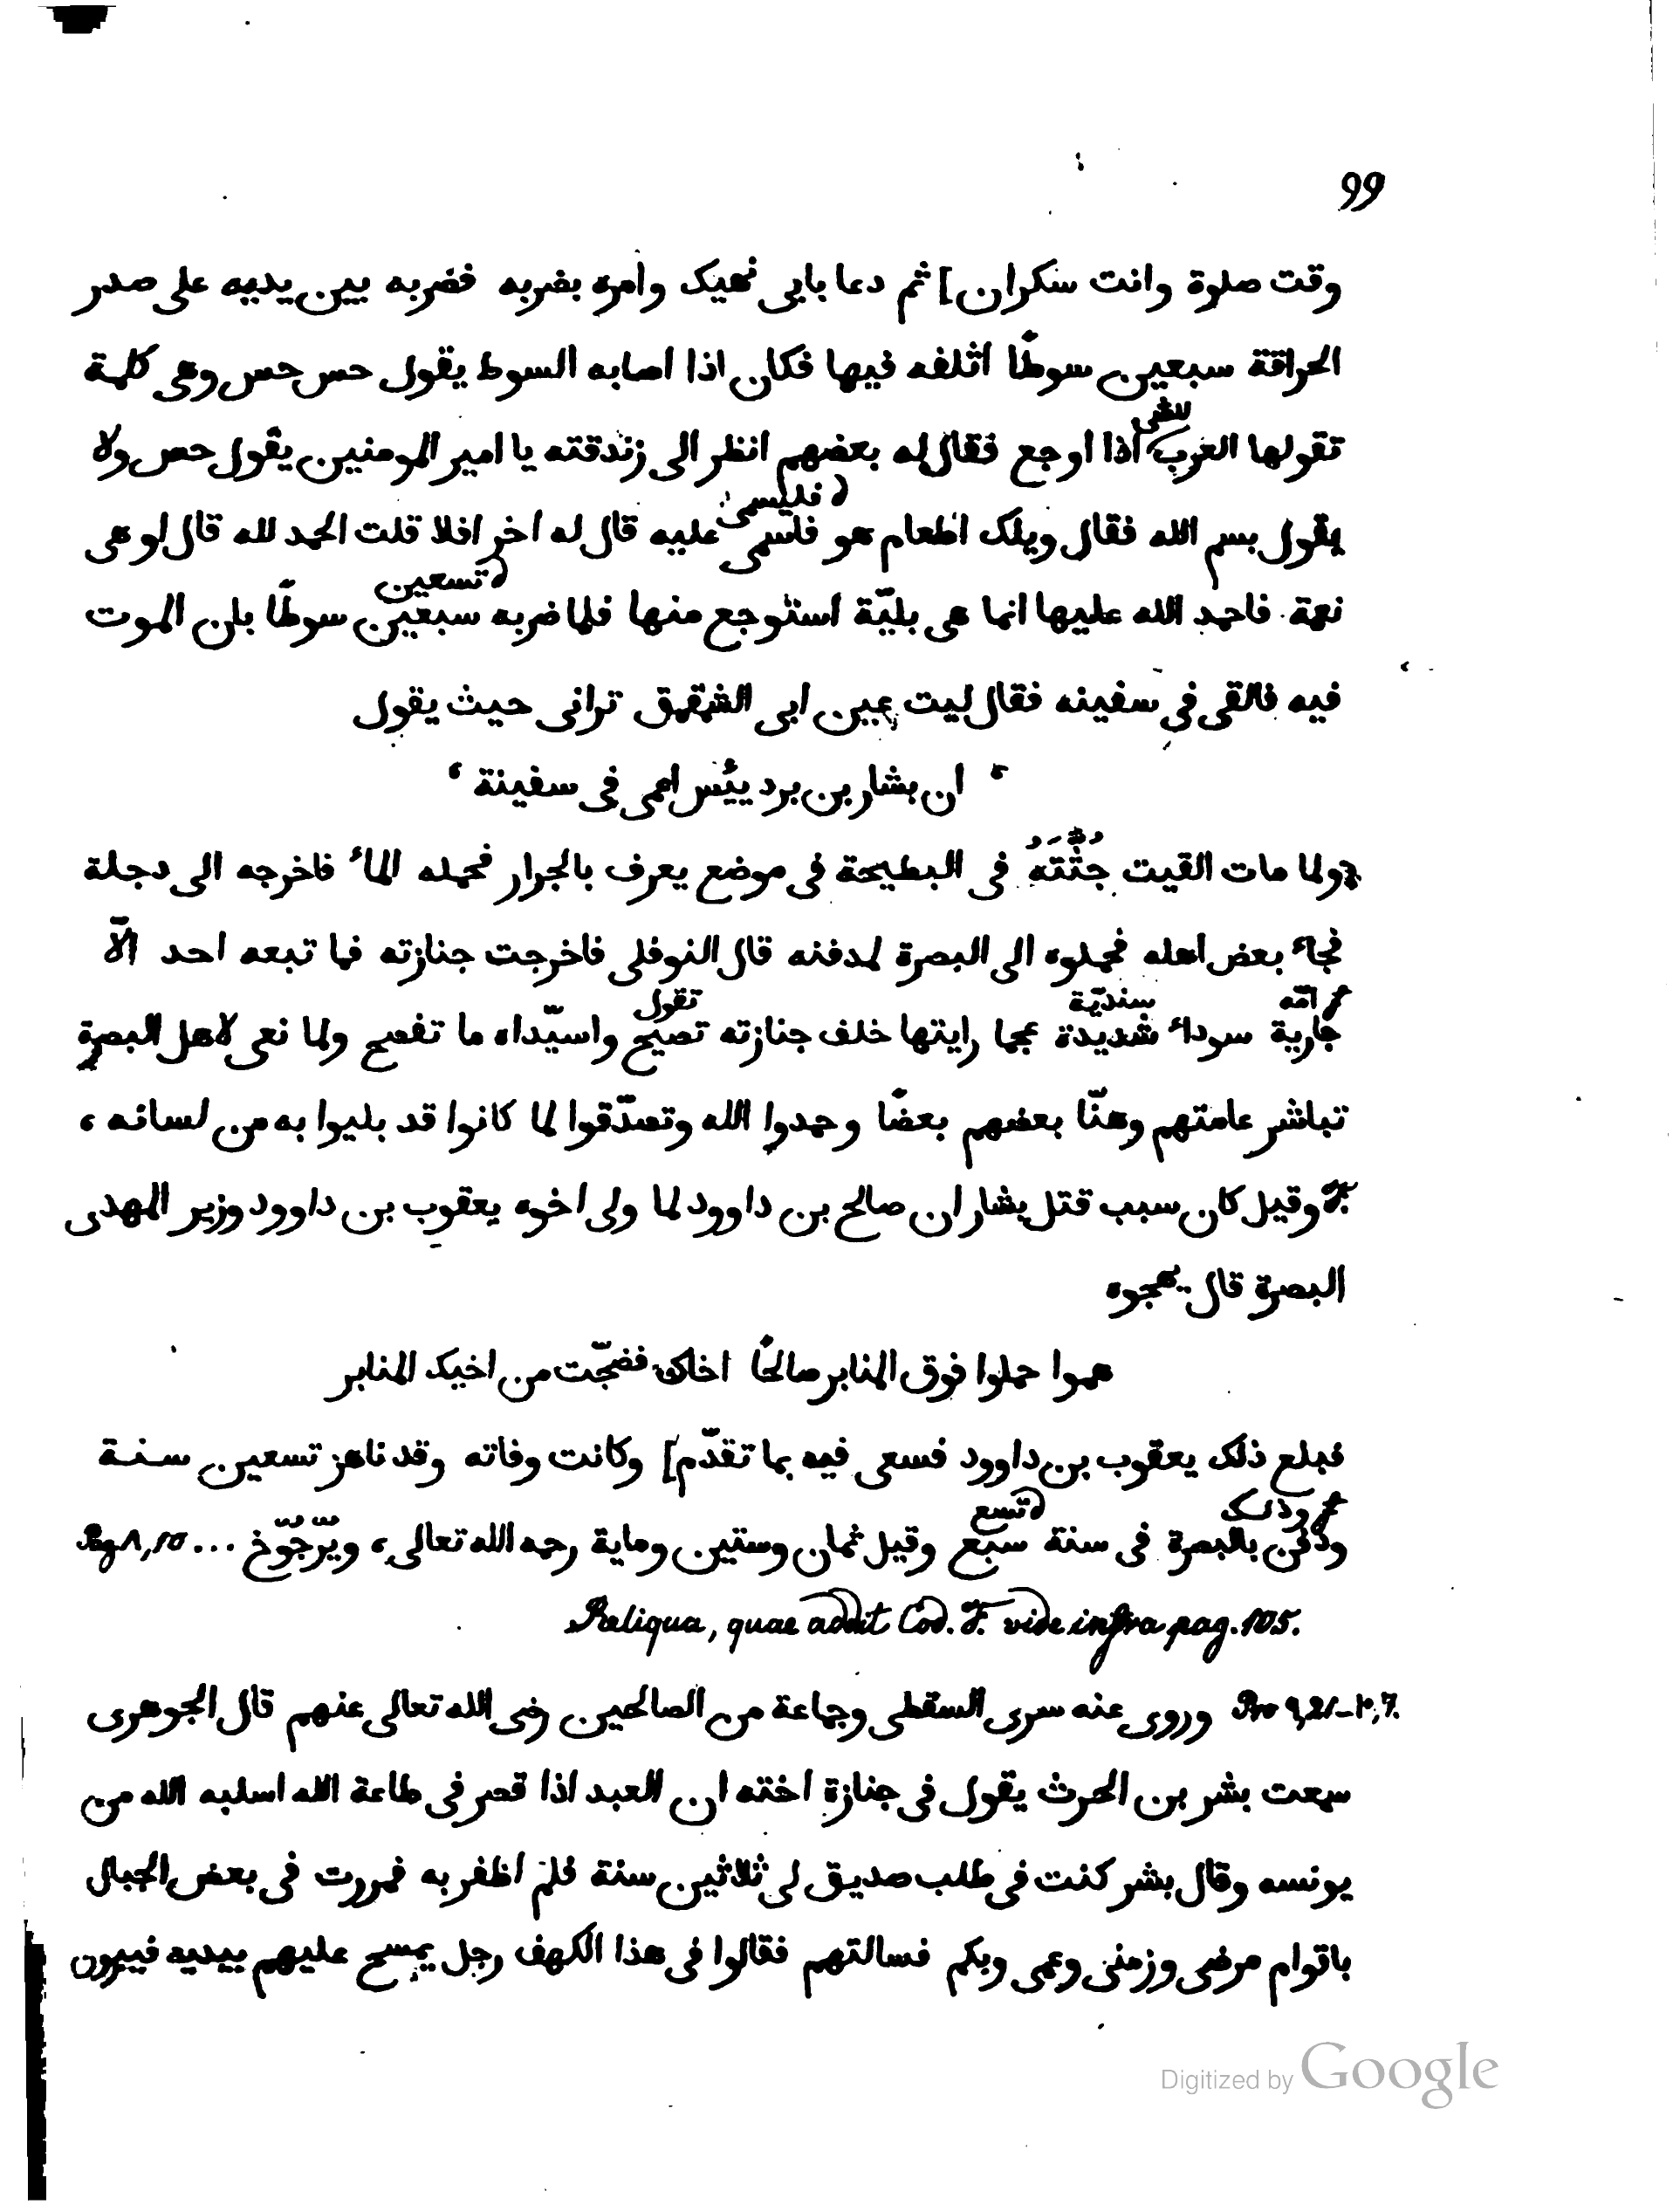 99
وقت صلوة وانت سكران] ثم دعا بابى نهيك وامره بضربه فضربه بين يديه على صدر
الحراقة سبعين سوطًا اتلفه فيها فكان اذا اصابه السوط يقول حس حس وهى كلمة
للشى
تقولها العرب اذا اوجع فقال له بعضهم انظر الى زندقته يا امير المومنين يقول حس ولا
فليسمى
يقول بسم الله فقال ويلك اطعام هو فاسمى عليه قال له اخر افلا قلت الحمد لله قال او هى
تسعين
نعمة فاحمد الله عليها انما هى بليّة استوجع منها فلما ضربه سبعين سوطًا بان الموت
فيه فالقى فى سفينه فقال ليت عين ابى الشمقمق ترانى حيث يقول
ان بشار بن برد يئس اعمى فى سفينة
ولما مات القيت جثّته فى البطيحة فى موضع يعرف بالجرار فحمله الماء فاخرجه الى دجلة
فجاء بعض اهله فحملوه الى البصرة لمدفنه قال النوفلى فاخرجت جنازته فما تبعه احد الّا
امّه سنديّة تقول
جارية سوداء شديدة عجما رايتها خلف جنازته تصيح واسيّداه ما تفصح ولما نعى لاهل البصرة
تباشر عامتهم وهنّا بعضهم بعضًا وحمدوا الله وتصدّقوا لما كانوا قد بليوا به من لسانه ،
وقيل كان سبب قتل بشار ان صالح بن داوود لما ولى اخوه يعقوب بن داوود وزير المهدى
البصرة قال يهجوه
هموا حملوا فوق المنابر صالحًا اخاك فضجّت من اخيك المنابر
فبلغ ذلك يعقوب بن داوود فسعى فيه بما تقدّم] وكانت وفاته وقد ناهز تسعين سنة
وذلك تسع
ودفن بالبصرة فى سنة سبع وقيل ثمان وستين وماية رحمه الله تعالى ، ويَرْجُوخ ... Pag ٨, ١٥
Reliqua, quae addit Cod. F. vide infra pag. 105.
Pro ٩,21-١٠,7. وروى عنه سرى السقطى وجماعة من الصالحين رضى الله تعالى عنهم قال الجوهرى
سمعت بشر بن الحرث يقول فى جنازة اخته ان العبد اذا قصر فى طاعة الله اسلبه الله من
يونسه وقال بشر كنت فى طلب صديق لى ثلاثين سنة فلم اظفر به فمررت فى بعض الجبال
باقوام مرضى وزمنى وعمى وبكم فسالتهم فقالوا فى هذا الكهف رجل يمسح عليهم بيديه فيبرون
Digitized by Google